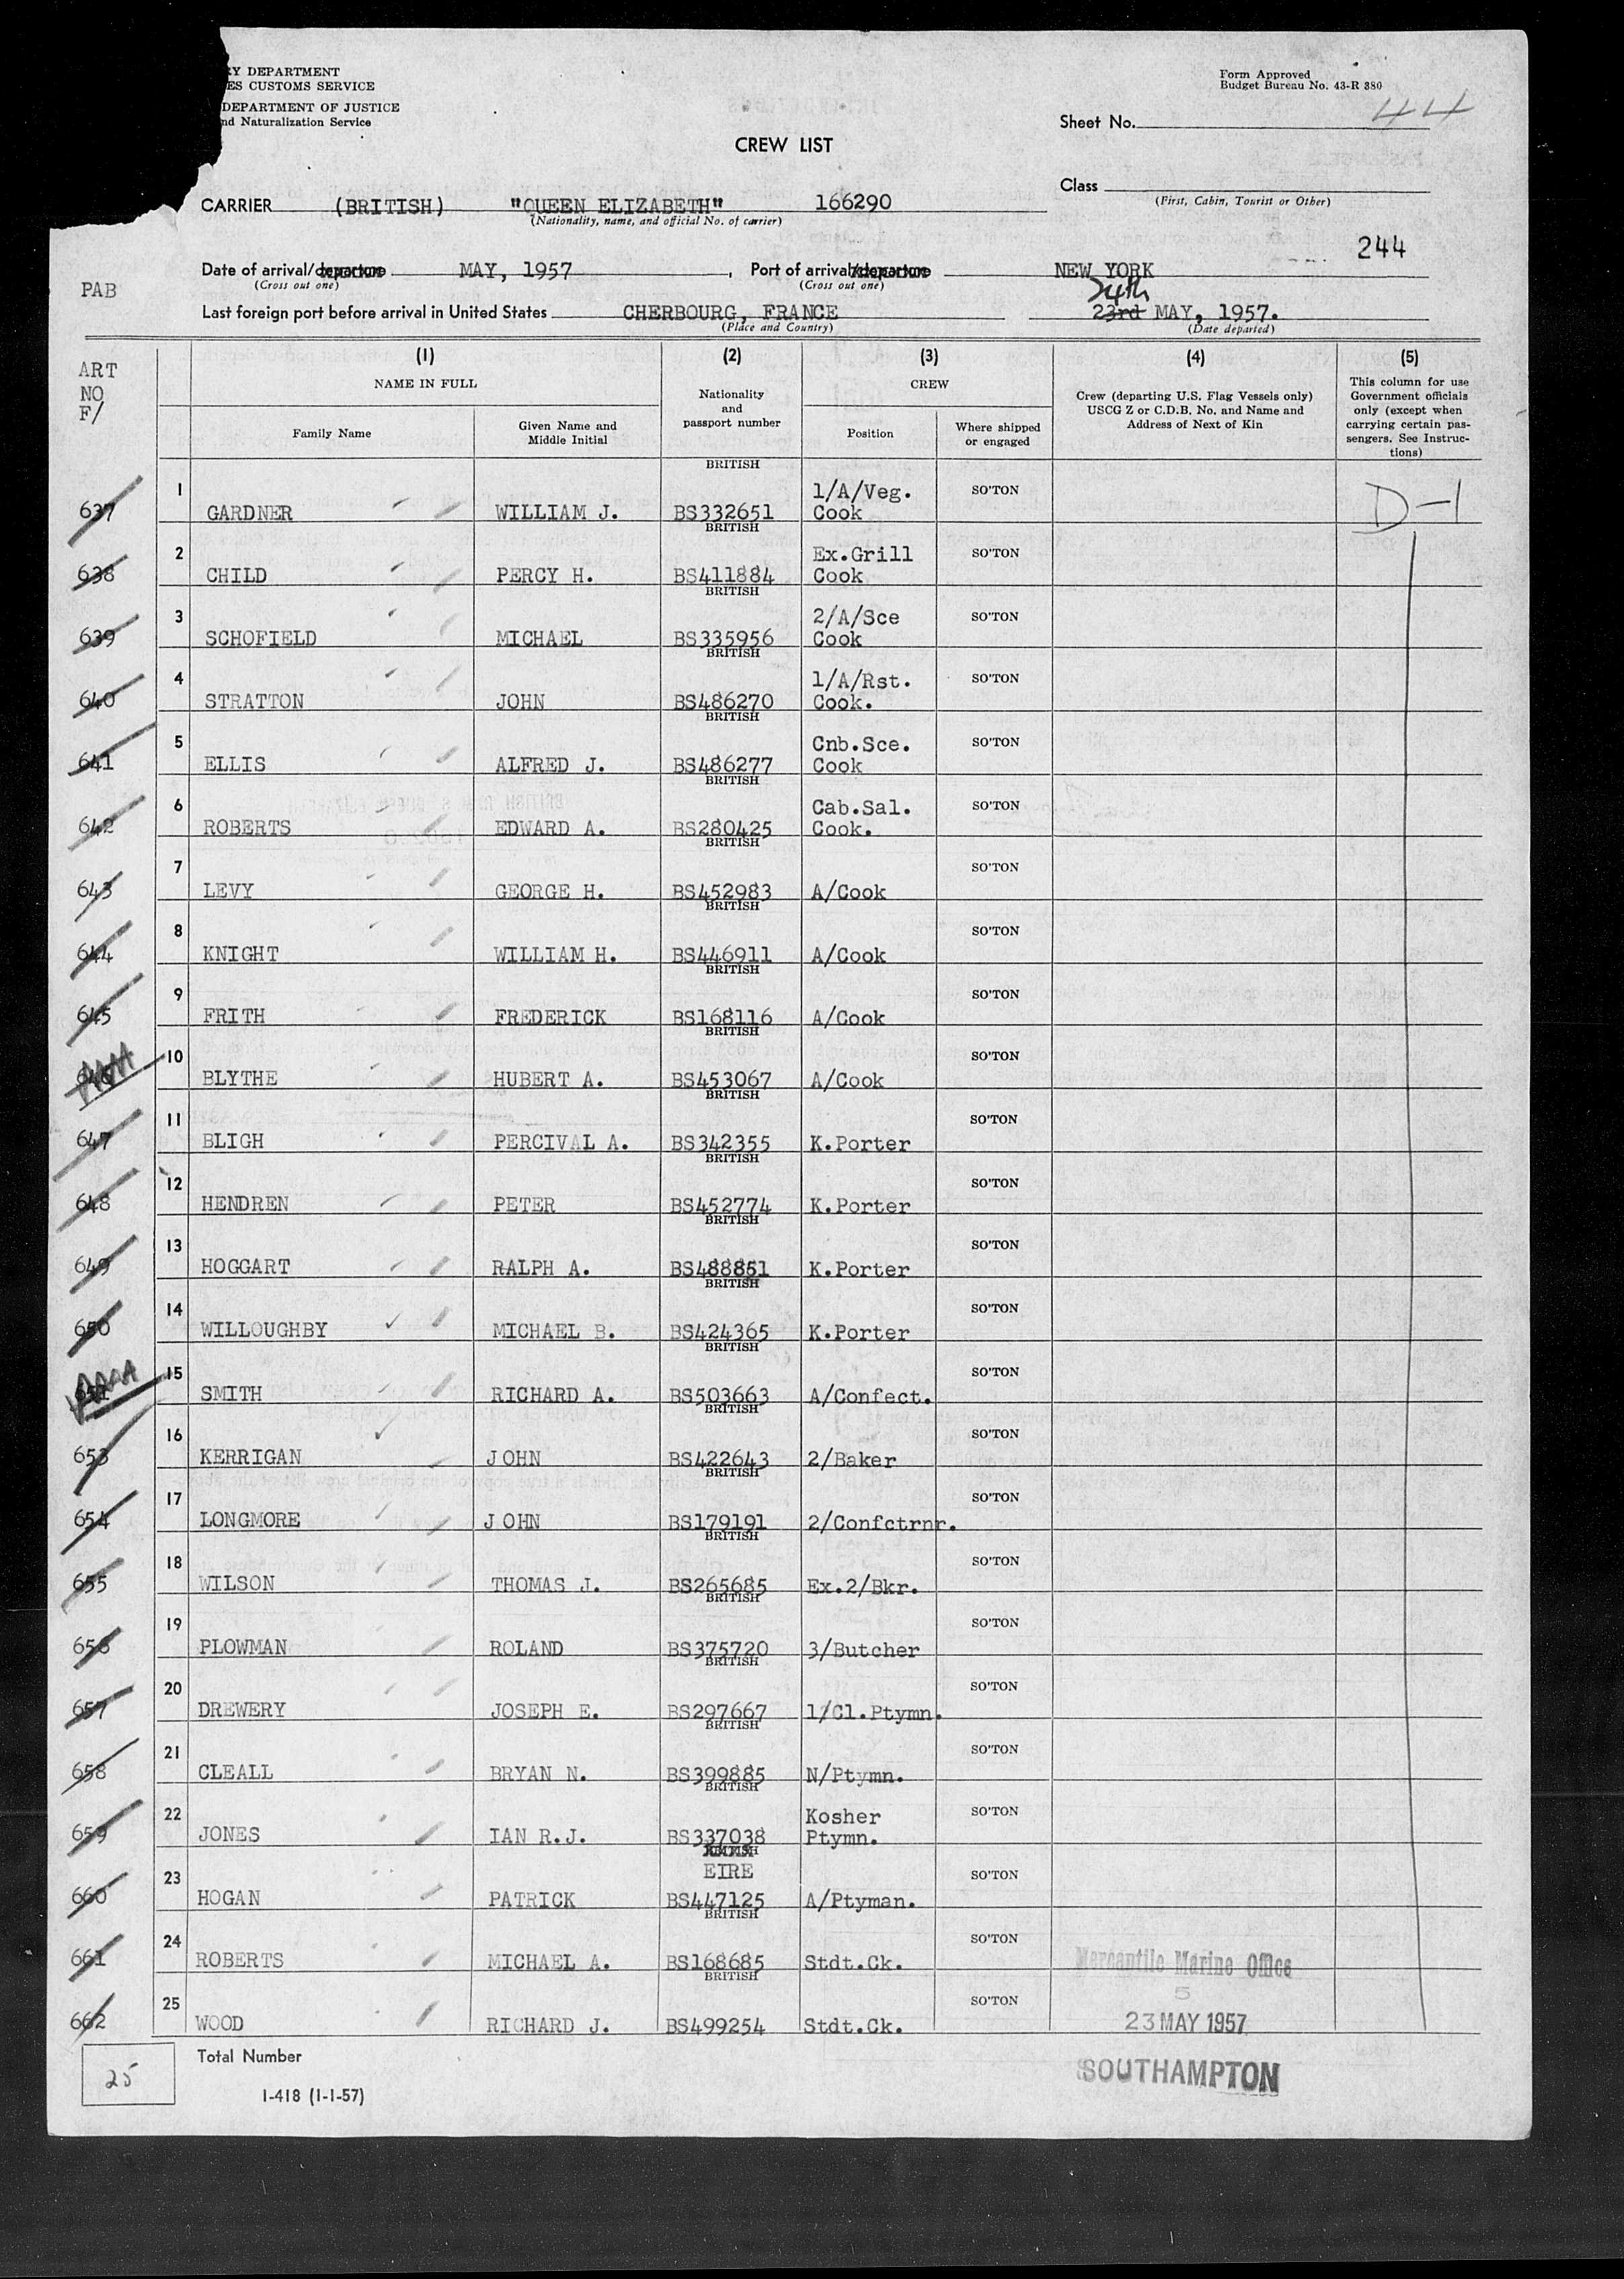 RY DEPARTMENT
ES CUSTOMS SERVICE
DEPARTMENT OF JUSTICE
nd Naturalization Service
Form Approved
Budget Bureau No. 43-R 380
Sheet No. 44
CREW LIST
Class
(First, Cabin, Tourist or Other)
CARRIER (BRITISH) "QUEEN ELIZABETH" 166290
(Nationality, name, and official No. of carrier)
244
Date of arrival/departure MAY, 1957, Port of arrival/departure NEW YORK
(Cross out one) (Cross out one)
PAB
24th
Last foreign port before arrival in United States CHERBOURG, FRANCE 23rd MAY, 1957.
(Place and Country) (Date departed)
ART
NO
F/
(1) (2) (3) (4) (5)
NAME IN FULL
Family Name
Given Name and
Middle Initial
Nationality
and
passport number
CREW
Position
Where shipped
or engaged
Crew (departing U.S. Flag Vessels only)
USCG Z or C.D.B. No. and Name and
Address of Next of Kin
This column for use
Government officials
only (except when
carrying certain pas-
sengers. See Instruc-
tions)
BRITISH
637 1 GARDNER WILLIAM J. BS332651 1/A/Veg. Cook SO'TON D-1
BRITISH
638 2 CHILD PERCY H. BS411884 Ex.Grill Cook SO'TON
BRITISH
639 3 SCHOFIELD MICHAEL BS335956 2/A/Sce Cook SO'TON
BRITISH
640 4 STRATTON JOHN BS486270 1/A/Rst. Cook. SO'TON
BRITISH
641 5 ELLIS ALFRED J. BS486277 Cnb.Sce. Cook SO'TON
BRITISH
642 6 ROBERTS EDWARD A. BS280425 Cab.Sal. Cook. SO'TON
BRITISH
643 7 LEVY GEORGE H. BS452983 A/Cook SO'TON
BRITISH
644 8 KNIGHT WILLIAM H. BS446911 A/Cook SO'TON
BRITISH
645 9 FRITH FREDERICK BS168116 A/Cook SO'TON
BRITISH
646 10 BLYTHE HUBERT A. BS453067 A/Cook SO'TON
BRITISH
647 11 BLIGH PERCIVAL A. BS342355 K.Porter SO'TON
BRITISH
648 12 HENDREN PETER BS452774 K.Porter SO'TON
BRITISH
649 13 HOGGART RALPH A. BS488851 K.Porter SO'TON
BRITISH
650 14 WILLOUGHBY MICHAEL B. BS424365 K.Porter SO'TON
BRITISH
651 15 SMITH RICHARD A. BS503663 A/Confect. SO'TON
BRITISH
653 16 KERRIGAN JOHN BS422643 2/Baker SO'TON
BRITISH
654 17 LONGMORE JOHN BS179191 2/Confctrnr. SO'TON
BRITISH
655 18 WILSON THOMAS J. BS265685 Ex.2/Bkr. SO'TON
BRITISH
656 19 PLOWMAN ROLAND BS375720 3/Butcher SO'TON
BRITISH
657 20 DREWERY JOSEPH E. BS297667 1/Cl.Ptymn. SO'TON
BRITISH
658 21 CLEALL BRYAN N. BS399885 N/Ptymn. SO'TON
BRITISH
659 22 JONES IAN R.J. BS337038 Kosher Ptymn. SO'TON
EIRE
660 23 HOGAN PATRICK BS447125 A/Ptyman. SO'TON
BRITISH
661 24 ROBERTS MICHAEL A. BS168685 Stdt.Ck. SO'TON
BRITISH
662 25 WOOD RICHARD J. BS499254 Stdt.Ck. SO'TON
Mercantile Marine Office
5
23 MAY 1957
SOUTHAMPTON
25 Total Number
I-418 (1-1-57)